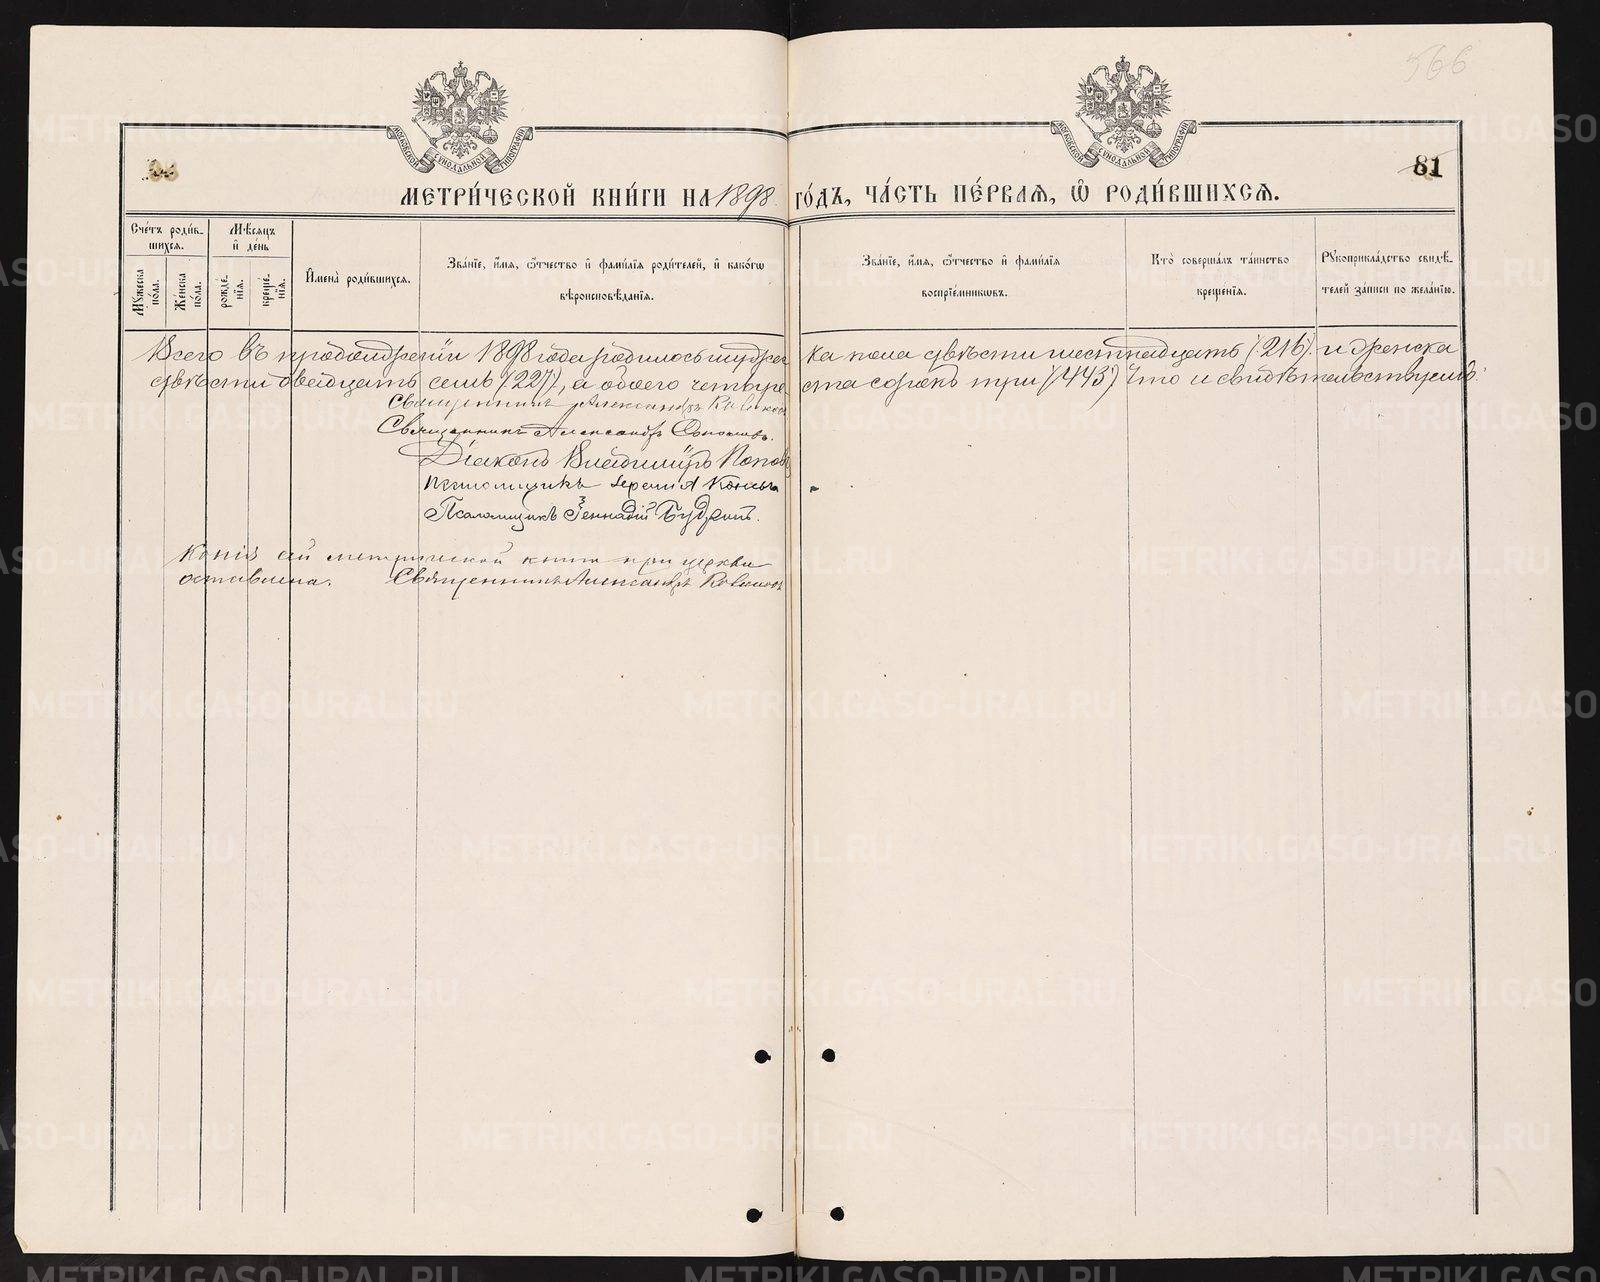 566
81
МОСКОВСКОЙ СѴНОДАЛЬНОЙ ТИПОГРАФІИ
МОСКОВСКОЙ СѴНОДАЛЬНОЙ ТИПОГРАФІИ
МЕТРИ́ЧЕСКОЙ КНИ́ГИ НА 1898 ГО́ДЪ, ЧА́СТЬ ПЕ́РВАЯ, Ѽ РОДИ́ВШИХСЯ.
Сче́тъ роди́в-
шихся.
Мꙋ́жеска
по́ла.
Же́нска
по́ла.
Мѣ́сяцъ
и҆ де́нь
рожде́-
нїя.
креще́-
нїя.
И҆мена̀ роди́вшихся.
Зва́нїе, и҆́мя, ѻ҆́тчество и҆ фами́лїя роди́телей, и҆ како́гѡ
вѣроисповѣ́данїя.
Зва́нїе, и҆́мя, ѻ҆́тчество и҆ фами́лїя
воспрїе́мникѡвъ.
Кто̀ соверша́лъ та́инство
креще́нїя.
Рꙋкоприкла́дство свидѣ́-
телей за́писи по жела́нїю.
Всего въ продолженіи 1898 года родилось мужеска пола двѣсти шестнадцать (216) и женска
двѣсти двадцать семь (227), а обоего четыреста сорокъ три (443) Что и свидѣтельствуемъ:
Священникъ Александръ
Священникъ Александръ
Діаконъ Владиміръ Поповъ
Псаломщикъ
Псаломщикъ Геннадій Будринъ.
Копія сей метрической книги при церкви
оставлена. Священникъ Александръ
METRIKI.GASO-URAL.RU